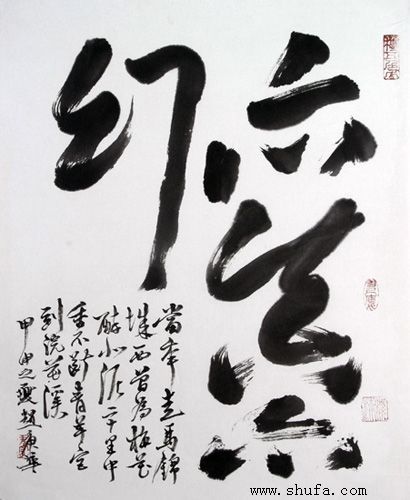 亦真亦
幻
當年走馬錦
城西曾為梅花
醉似泥二十里中
香不斷青羊宮
到浣花溪
甲申之夏趙
www.shufa.com